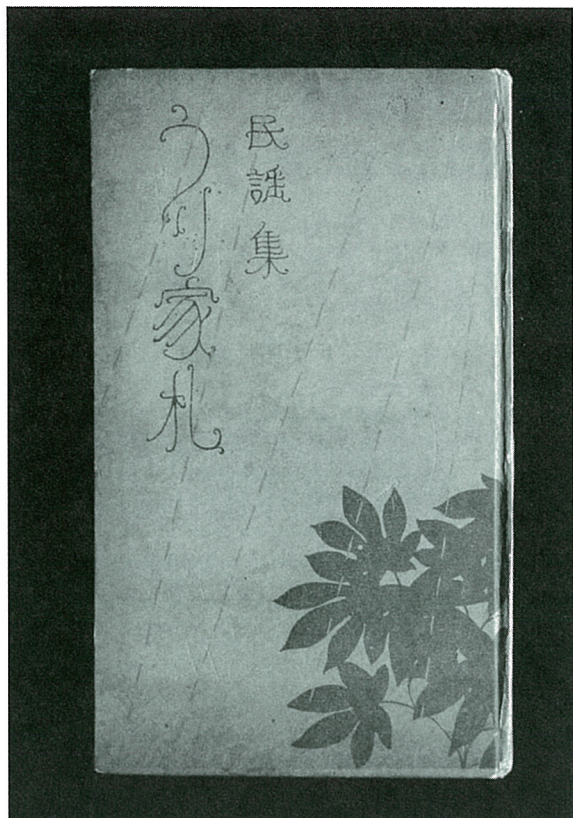 民謡集
うり家札